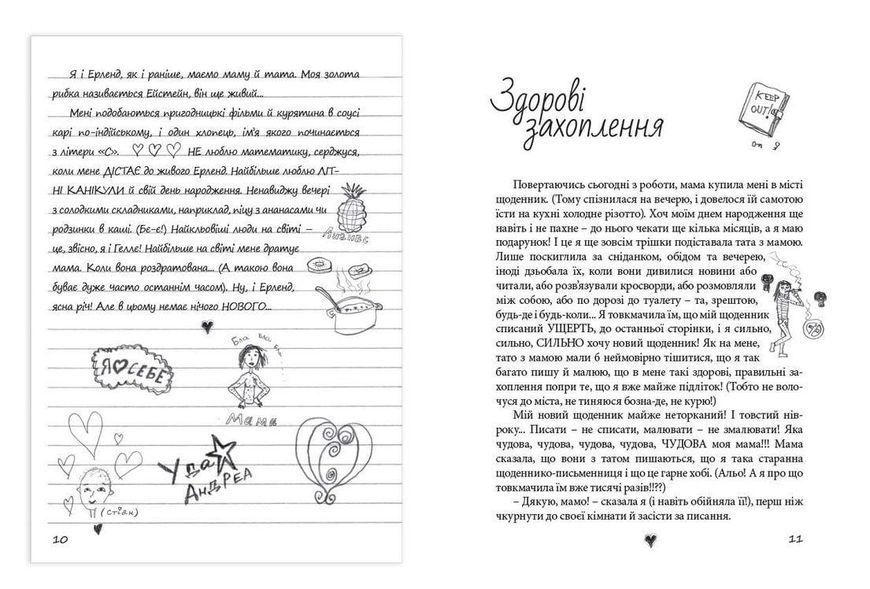 Я і Ерленд, як і раніше, маємо маму й тата. Моя золота
рибка називається Ейстейн, він ще живий...
Мені подобаються пригодницькі фільми й курятина в соусі
карі по-індійському, і один хлопець, ім'я якого починається
з літери «С». НЕ люблю математику, серджуся,
коли мене ДІСТАЄ до живого Ерленд. Найбільше люблю ЛІТ-
НІ КАНІКУЛИ й свій день народження. Ненавиджу вечері
з солодкими складниками, наприклад, піцу з ананасами чи
родзинки в каші. (Бе-є!) Найкльовіші люди на світі –
це, звісно, я і Гелле! Найбільше на світі мене дратує
мама. Коли вона роздратована... (А такою вона
буває дуже часто останнім часом). Ну, і Ерленд,
ясна річ! Але в цьому немає нічого НОВОГО...
Ананас
Бла бла бла
Я СЕБЕ
Мама
Уда
АНДРЕА
(стіан)
10
Здорові
захоплення
KEEP
OUT!
Повертаючись сьогодні з роботи, мама купила мені в місті
щоденник. (Тому спізнилася на вечерю, і довелося їй самотою
їсти на кухні холодне різотто). Хоч моїм днем народження ще
навіть і не пахне – до нього чекати ще кілька місяців, а я маю
подарунок! І це я ще зовсім трішки подіставала тата з мамою.
Лише поскиглила за сніданком, обідом та вечерею,
іноді дзьобала їх, коли вони дивилися новини або
читали, або розв'язували кросворди, або розмовляли
між собою, або по дорозі до туалету – та, зрештою,
будь-де і будь-коли... Я товкмачила їм, що мій щоденник
списаний УЩЕРТЬ, до останньої сторінки, і я сильно,
сильно, СИЛЬНО хочу новий щоденник! Як на мене,
тато з мамою мали б неймовірно тішитися, що я так
багато пишу й малюю, що в мене такі здорові, правильні за-
хоплення попри те, що я вже майже підліток! (Тобто не воло-
чуся до міста, не тиняюся бозна-де, не курю!)
Мій новий щоденник майже неторканий! І товстий нів-
року... Писати – не списати, малювати – не змалювати! Яка
чудова, чудова, чудова, чудова, ЧУДОВА моя мама!!! Мама
сказала, що вони з татом пишаються, що я така старанна
щоденнико-письменниця і що це гарне хобі. (Альо! А я про що
товкмачила їм вже тисячі разів!!??)
– Дякую, мамо! – сказала я (і навіть обійняла її!), перш ніж
чкурнути до своєї кімнати й засісти за писання.
11